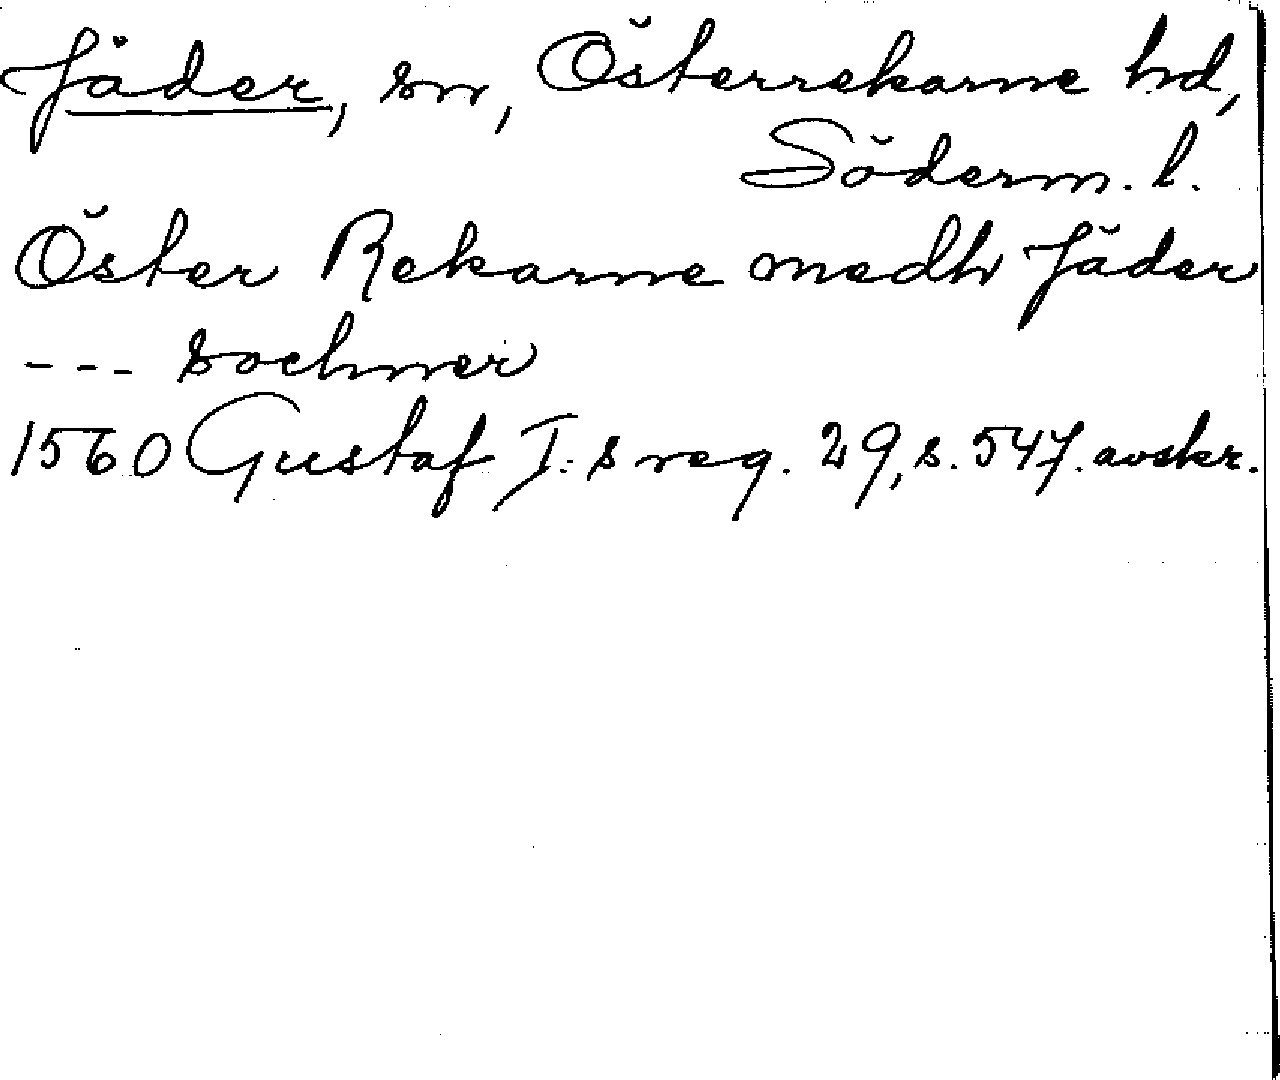 Jäder, sn, Österrekarne hd,
Söderm. l.
Öster Rekarne medh Jäder
--- sochner
1560 Gustaf I:s reg. 29, s. 547. avskr.